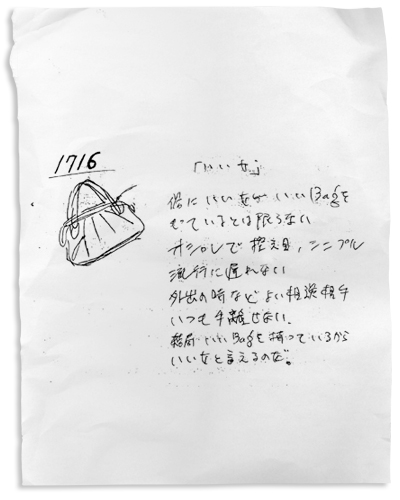 1716
「いい女」
俗にいい女がいいBagを
もっているとは限らない
オシャレで控え目、シンプル
流行に遅れない
外出の時などよい相談相手
いつも手離せない、
結局いいBagを持っているから
いい女と言えるのだ。